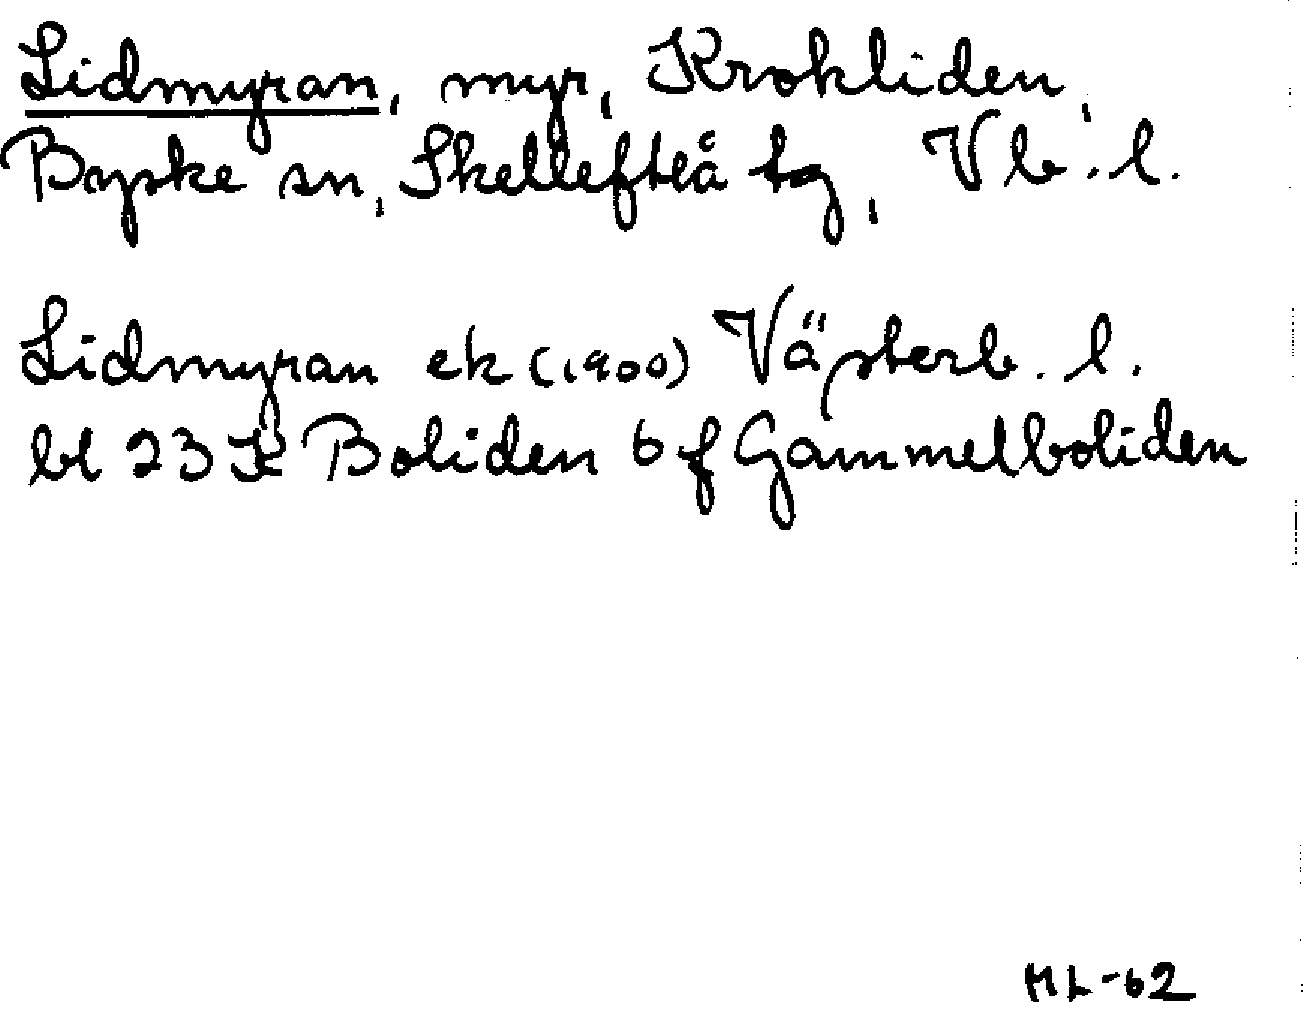 Lidmyran, myr, Krokliden,
Byske sn, Skellefteå tg, Vb. l.
Lidmyran ek (1900) Västerb. l.
bl 23 K Boliden 6 f Gammelboliden
HL-62